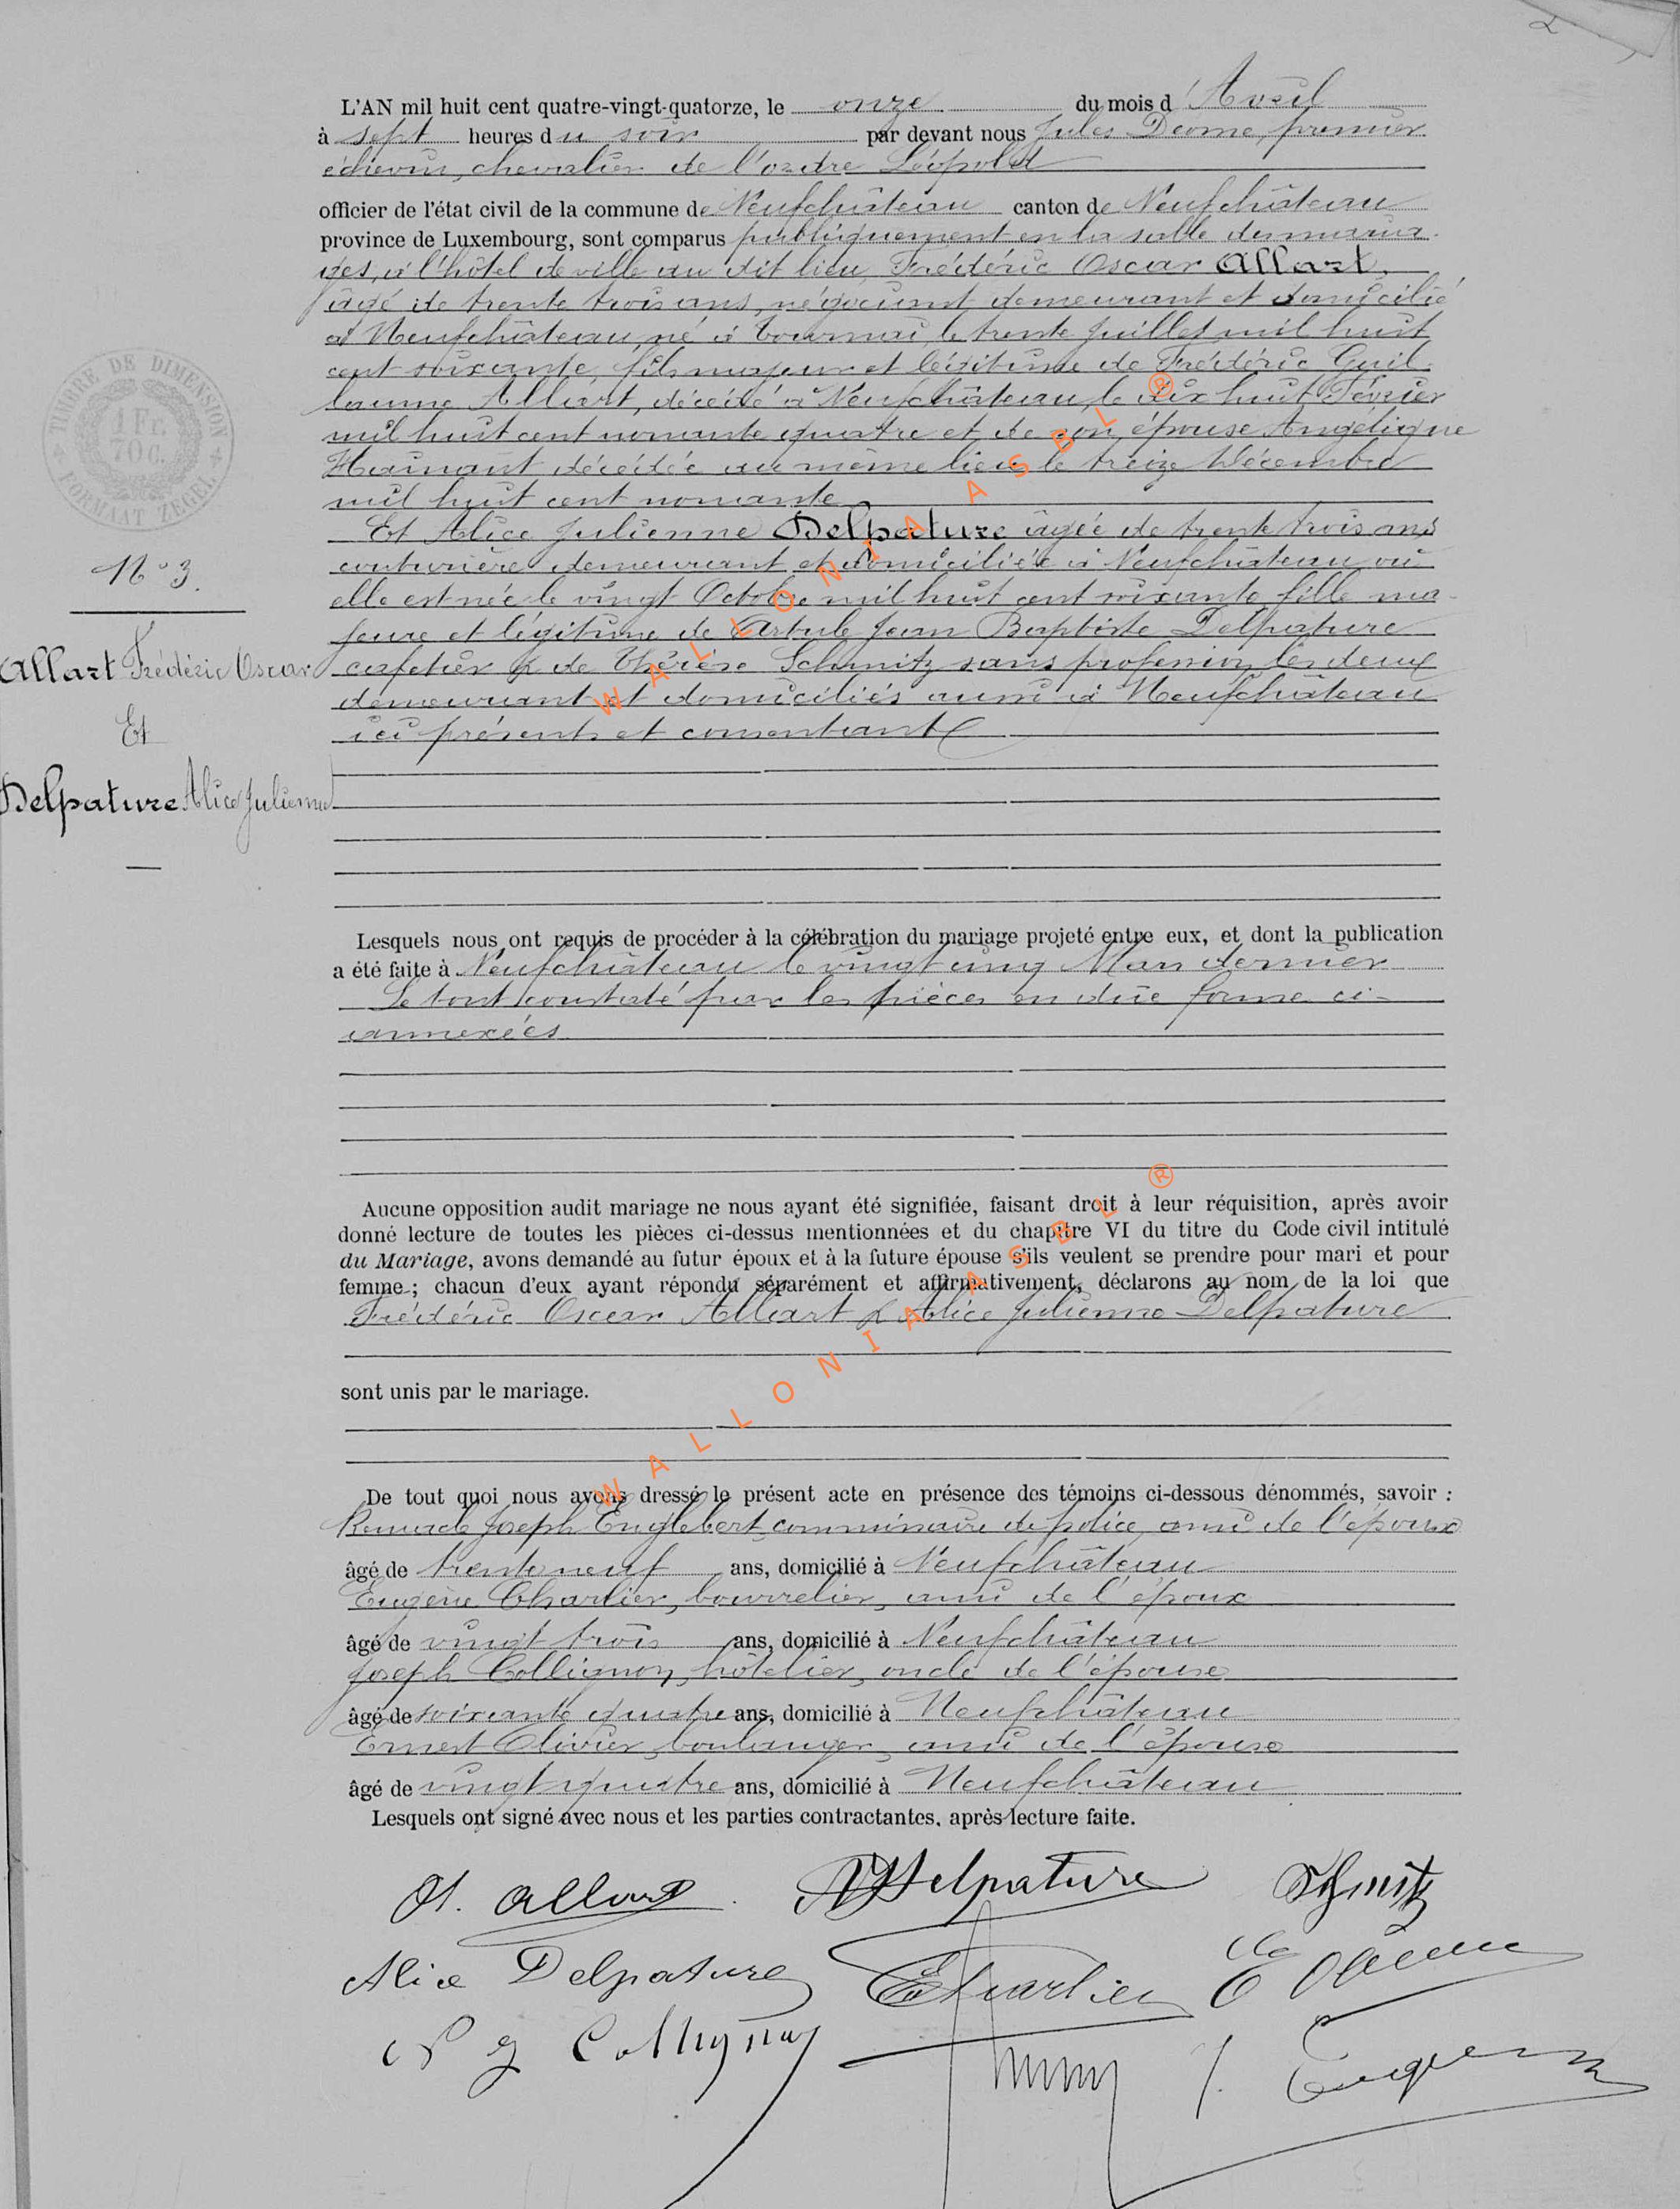 L'AN mil huit cent quatre-vingt-quatorze, le onze du mois d'Avril
à sept heures du soir par devant nous Jules Déome, premier
échevin, chevalier de l'ordre Léopold
officier de l'état civil de la commune de Neufchâteau canton de Neufchâteau
province de Luxembourg, sont comparus publiquement en la salle des maria-
ges, à l'hôtel de ville au dit lieu, Frédéric Oscar Allart,
âgé de trente trois ans, négociant demeurant et domicilié
à Neufchâteau, né à Tournai, le trente Juillet mil huit
cent soixante, fils majeur et légitime de Frédéric Guil-
laume Allart, décédé à Neufchâteau, le dix huit Février
mil huit cent nonante quatre et de son épouse Angélique
Hainaut décédée au même lieu le treize Décembre
mil huit cent nonante
Et Alice Julienne Delpature âgée de trente trois ans
couturière demeurant et domiciliée à Neufchâteau où
elle est née le vingt Octobre mil huit cent soixante fille ma-
jeure et légitime de Jean Baptiste Delpature
cafetier & de Thérèse Schmitz sans profession, les deux
demeurant et domiciliés aussi à Neufchâteau
ici présents et consentants
TIMBRE DE DIMENSION
1 Fr.
70 C.
FORMAAT ZEGEL
N° 3.
Allart Frédéric Oscar
Et
Delpature Alice Julienne
Lesquels nous ont requis de procéder à la célébration du mariage projeté entre eux, et dont la publication
a été faite à Neufchâteau le vingt cinq Mars dernier
Le tout constaté par les pièces en due forme ci-
annexées
Aucune opposition audit mariage ne nous ayant été signifiée, faisant droit à leur réquisition, après avoir
donné lecture de toutes les pièces ci-dessus mentionnées et du chapitre VI du titre du Code civil intitulé
du Mariage, avons demandé au futur époux et à la future épouse s'ils veulent se prendre pour mari et pour
femme ; chacun d'eux ayant répondu séparément et affirmativement, déclarons au nom de la loi que
Frédéric Oscar Allart & Alice Julienne Delpature
sont unis par le mariage.
De tout quoi nous avons dressé le présent acte en présence des témoins ci-dessous dénommés, savoir :
Remacle Joseph Englebert, commissaire de police, ami de l'époux
âgé de trente neuf ans, domicilié à Neufchâteau
Eugène Charlier, bourrelier, ami de l'époux
âgé de vingt trois ans, domicilié à Neufchâteau
Joseph Collignon, hôtelier, oncle de l'épouse
âgé de soixante quatre ans, domicilié à Neufchâteau
Ernest Olivier, boulanger, ami de l'épouse
âgé de vingt quatre ans, domicilié à Neufchâteau
Lesquels ont signé avec nous et les parties contractantes, après lecture faite.
O. Allart Delpature Schmitz
Alice Delpature E Charlier
Collignon
WALLONIA ASBL ®
WALLONIA ASBL ®